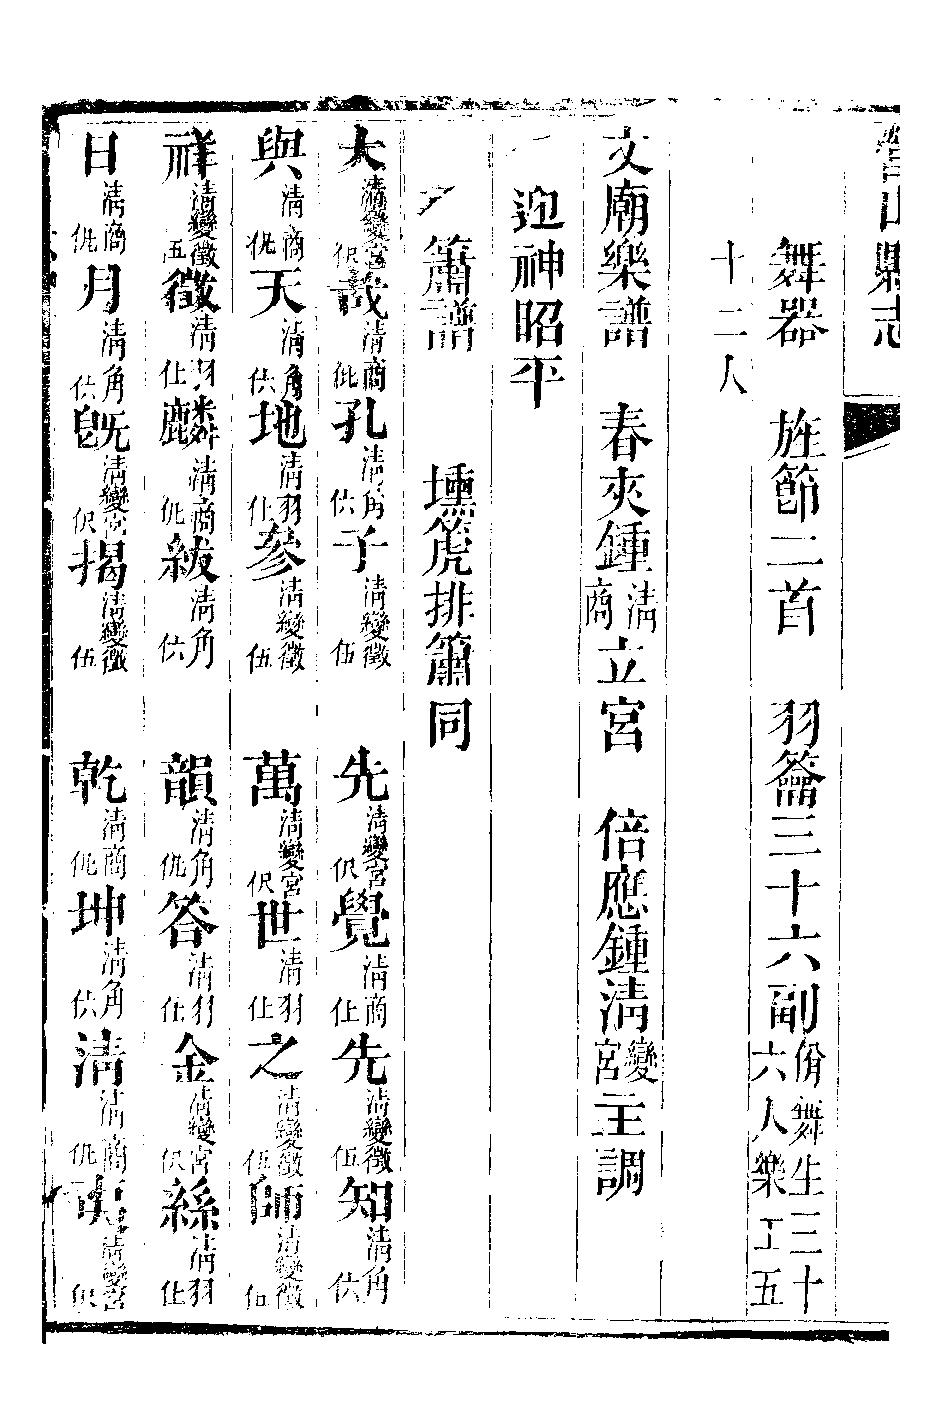 山縣志
舞器　旌節二首　羽籥三十六副佾舞生三十六人樂工五
十二人
文廟樂譜　春夾鍾清商立宮　倍應鍾清變宮主調
迎神昭平
簫譜　壎篪排簫同
大清變宮伬哉清商孔清角子清變徵伍　先清變宮伬覺清商仩先清變徵伍知清角
與清商天清角地清羽仩參清變徵伍　萬清變宮伬世清羽仩之清變徵伍師清變徵伍
祥清變徵伍徵清羽仩麟清商紱清角　韻清角答清羽仩金清變宮伬絲清羽仩
日清商月清角既清變宮伬揭清變徵伍　乾清商坤清角清清商夷清變宮伬